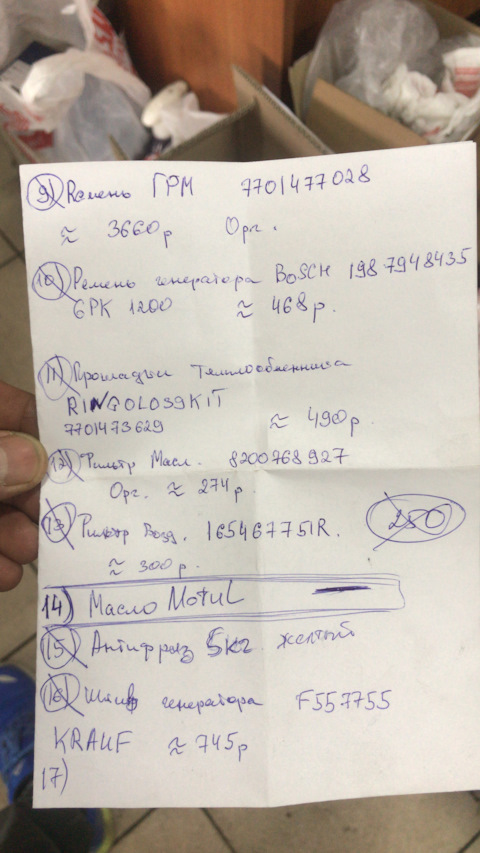 9) Ремень ГРМ 7701477028
≈ 3660р Орг.
10) Ремень генератора BOSCH 1987948435
6PK 1200 ≈ 468р.
11) Прокладки теплообменника
RINGOLOS9KIT
7701473629 ≈ 490р.
12) Фильтр Масл. 8200768927
Орг. ≈ 274р.
13) Фильтр Возд. 165467751R. 250
≈ 300р.
14) Масло Motul
15) Антифриз 5кг желтый
16) Шкив генератора F557755
KRAUF ≈ 745р
17)